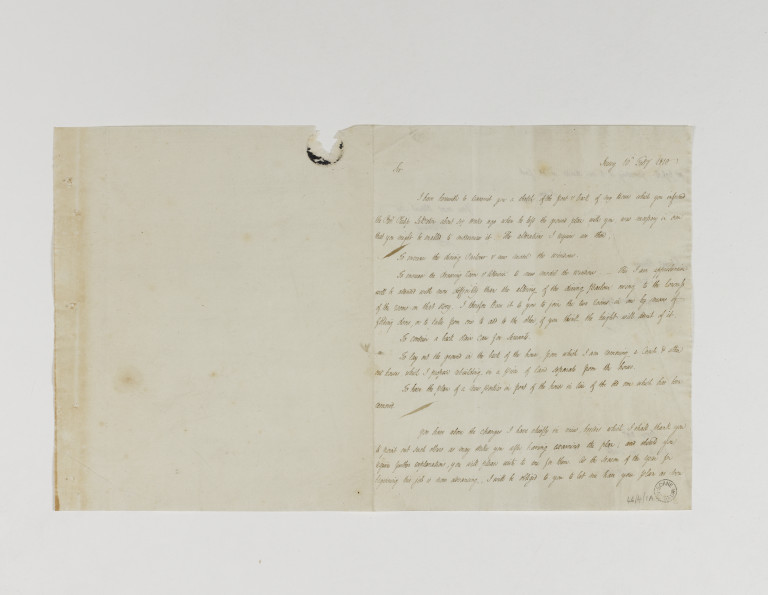 10th Feby 1810
Sir
I have herewith to forward you a sketch of the front & back of my House which you informed
ago when he left the ground plan with you, was necessary in order
that you might be enabled to Modernise it. The alterations I require are these.
To increase the dining Parlour & new model the windows.
To increase the drawing Room & Library & new model the windows. This I am apprehensive
will be attended with more difficulty than the altering of the dining Parlour owing to the lowness
of the rooms in that story. I therefore leave it to you to join the two Rooms in one by means of
folding doors or to take from one to add to the other if you think the height will admit of it.
To contrive a back stair case for Servants
To lay out the ground in the back of the house from which I am removing a Coach & other
out houses which I propose rebuilding on a piece of land separate from the house.
To have the plan of a new portico in front of the house in lieu of the old one which has been
removed.
You have above the changes I have chiefly in view besides which I shall thank you
to point out such others as may strike you after having examined the plan, and should you
require further explanation, you will please write to me for them. As the season of the year for
beginning this job is now advancing, I will be obliged to you to let me have your plan as soon